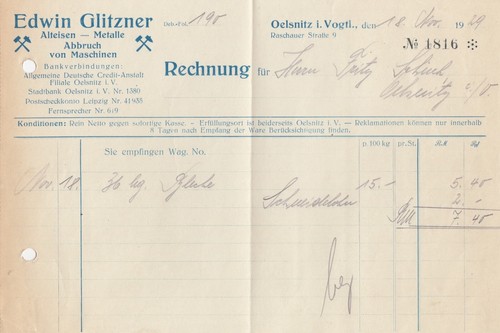 Edwin Glitzner
Alteisen — Metalle
Abbruch
von Maschinen
Bankverbindungen:
Allgemeine Deutsche Credit-Anstalt
Filiale Oelsnitz i. V.
Stadtbank Oelsnitz i. V. Nr. 1380
Postscheckkonto Leipzig Nr. 41935
Fernsprecher Nr. 619
Gch.-Fol. 190
Oelsnitz i. Vogtl., den 18. Nov. 1929
Raschauer Straße 9
№ 1816
Rechnung für Herrn Fritz
Oelsnitz i/V.
Konditionen: Rein Netto gegen sofortige Kasse. – Erfüllungsort ist beiderseits Oelsnitz i. V. – Reklamationen können nur innerhalb
8 Tagen nach Empfang der Ware Berücksichtigung finden.
Sie empfingen Wag. No. p 100 kg pr. St. RM Pf
Nov. 18. 36 kg 15.- 5.40
Schneidelohn 2.-
RM 7.40